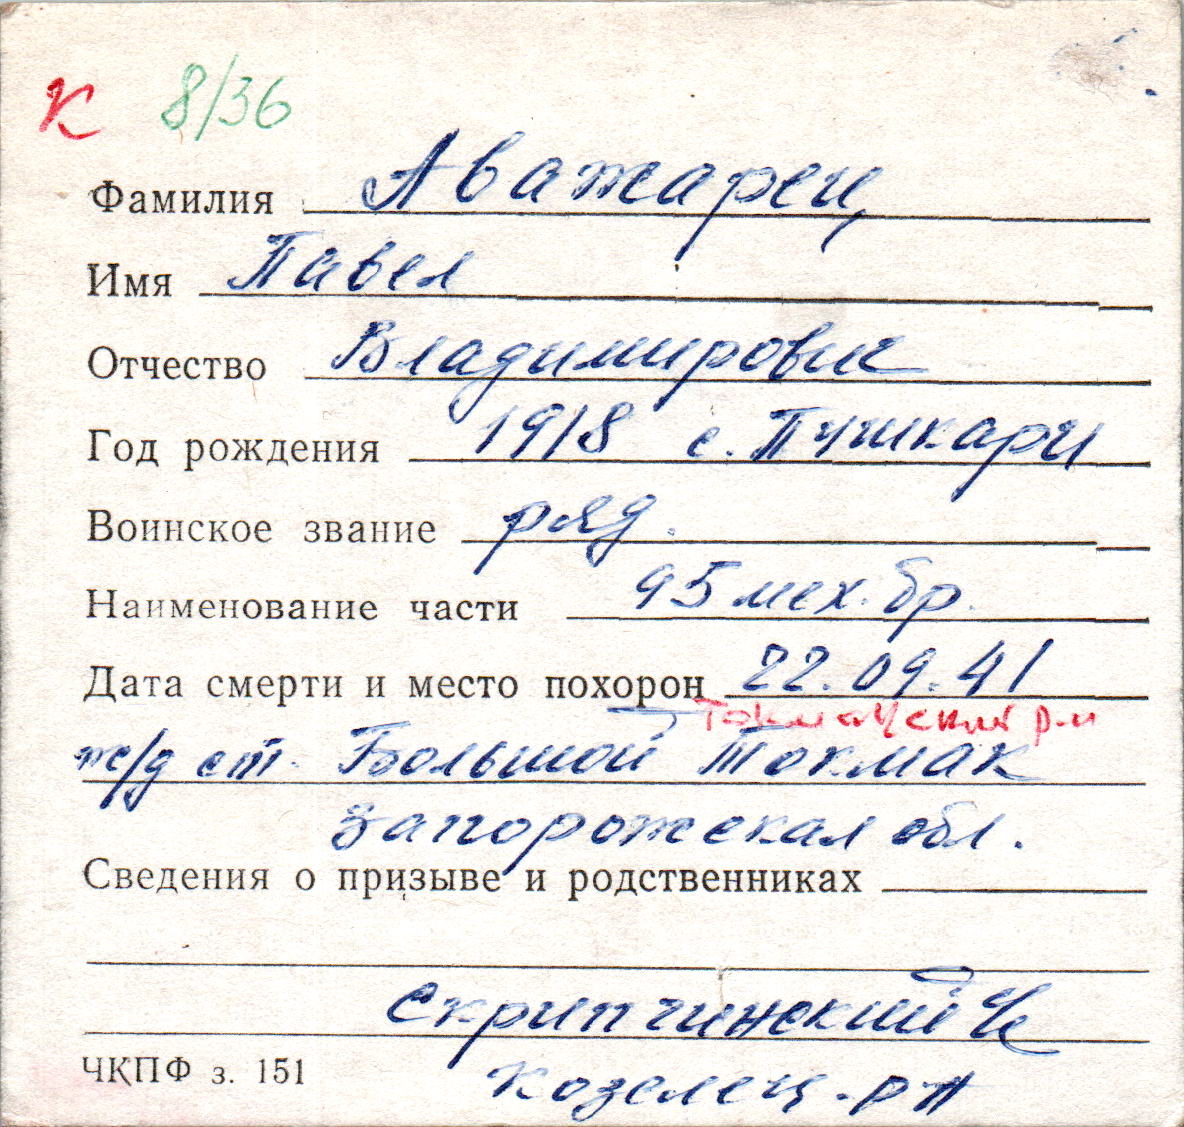 К 8/36
Фамилия Аважарец
Имя Павел
Отчество Владимирович
Год рождения 1918 с. Пушкари
Воинское звание ряд.
Наименование части 95 мех. бр.
Дата смерти и место похорон 22.09.41
Токмакский р-н
ж/д ст. Большой Токмак
Запорожская обл.
Сведения о призыве и родственниках
Скрипчинский
ЧКПФ з. 151
Козелец. р-н